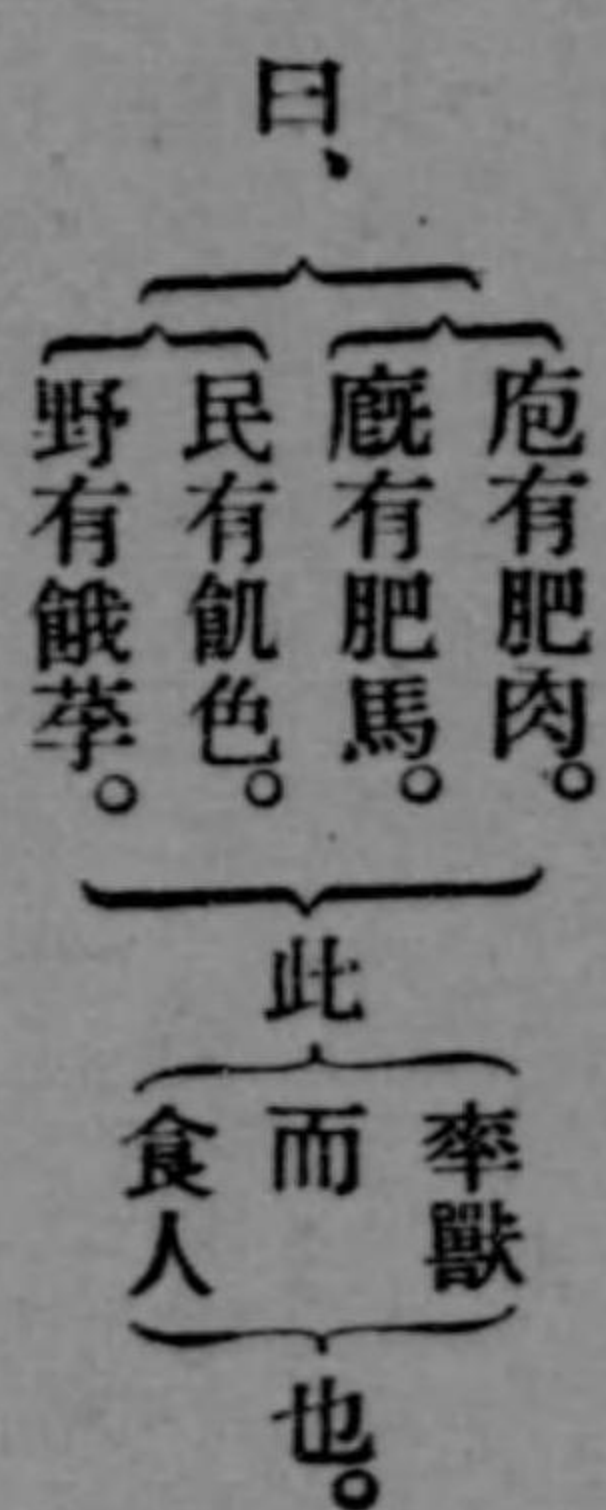 曰、
庖有肥肉。
廐有肥馬。
民有飢色。
野有餓莩。
此
率獸
而
食人
也。